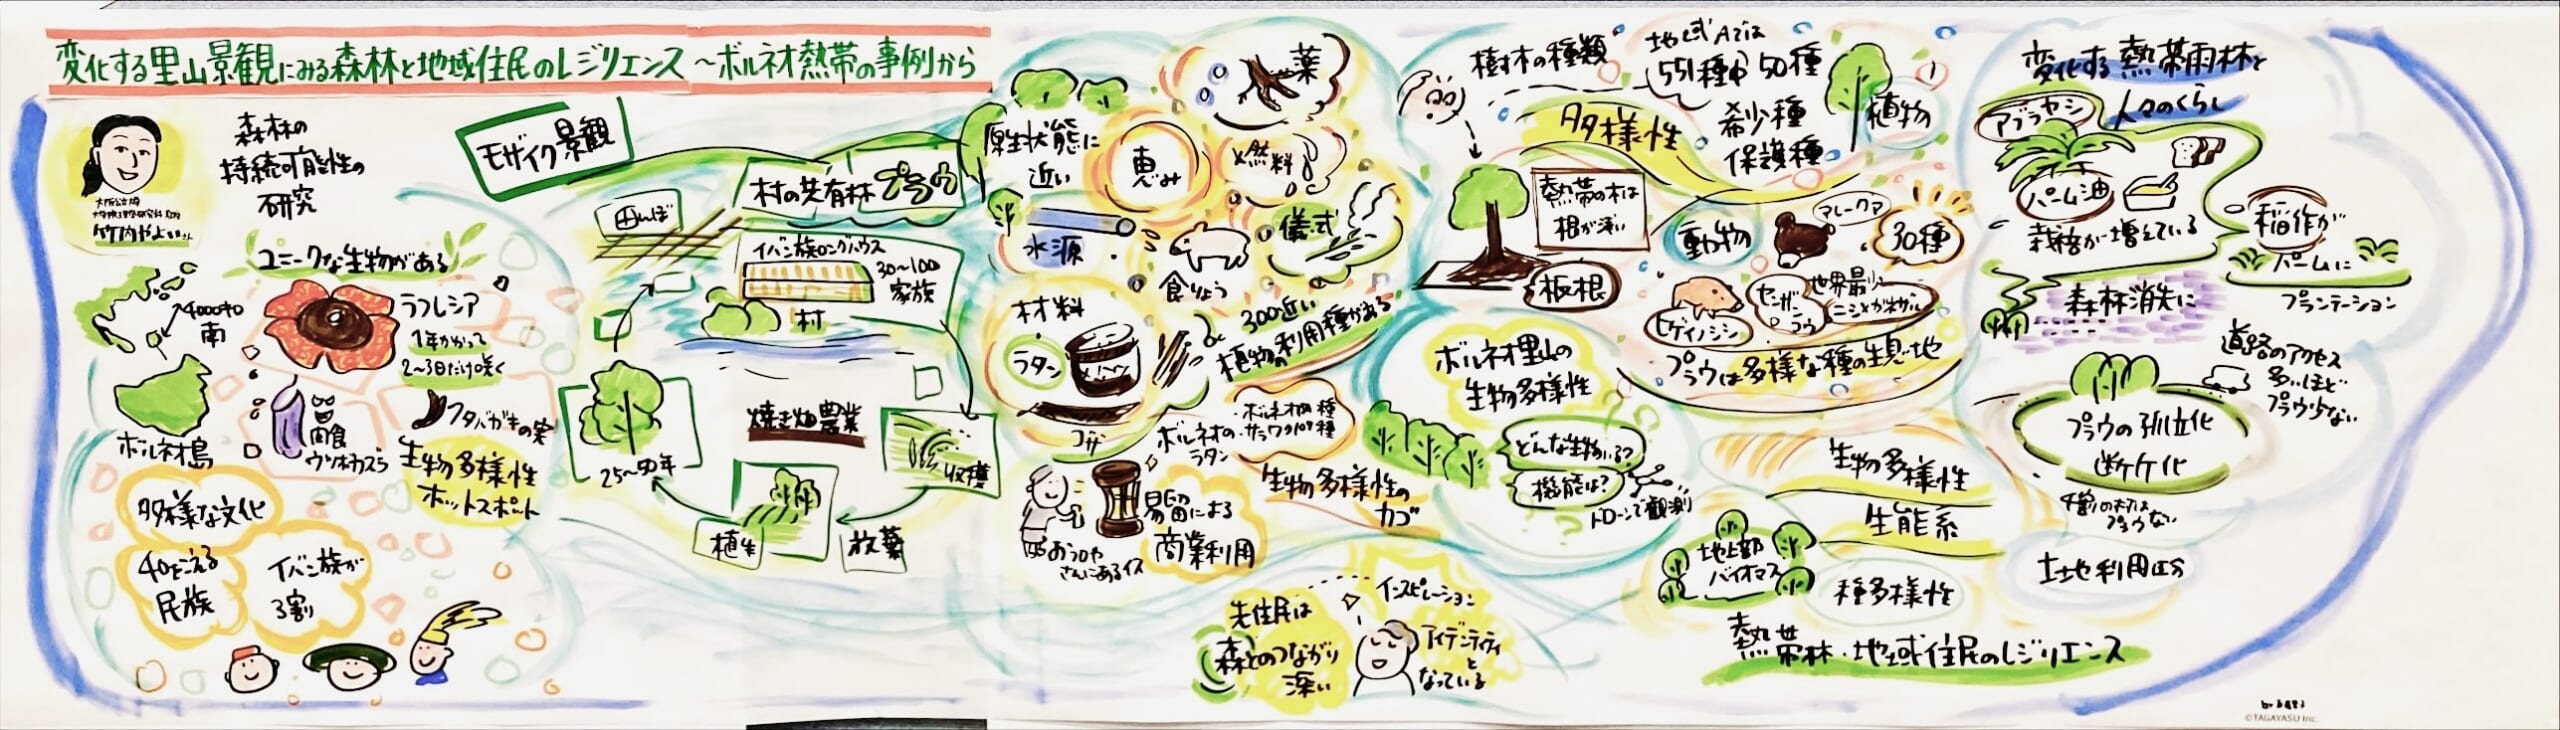 変化する里山景観にみる森林と地域住民のレジリエンス 〜ボルネオ熱帯の事例から
竹内やよいさん
森林の
持続可能性の
研究
ユニークな生物がある
4000キロ
南
ボルネオ島
ラフレシア
1年かかって
2〜3日だけ咲く
肉食
ウツボカズラ
フタバガキの実
生物多様性
ホットスポット
多様な文化
40をこえる
民族
イバン族が
3割
モザイク景観
田んぼ
村の共有林 プラウ
イバン族ロングハウス
30〜100
家族
村
焼き畑農業
収穫
放棄
植生
25〜50年
原生状態に
近い
恵み
薬
燃料
水源
食りょう
儀式
材料
ラタン
ゴザ
300近い
植物の利用種がある
ボルネオの
ラタン
生物多様性の
カゴ
おフロや
さんにあるイス
易留による
商業利用
先住民は
森とのつながり
深い
インスピレーション
アイデンティティ
と
なっている
樹木の種類
地域Aでは
551種中50種
希少種
保護種
多様性
植物
熱帯の木は
根が浅い
板根
動物
マレーグマ
30種
ヒゲイノシシ
センザン
コウ
世界最少
プラウは多様な種の生息地
ボルネオ里山の
生物多様性
どんな生物がいる?
機能は?
ドローンで観測
生物多様性
生能系
地上部
バイオマス
種多様性
熱帯林・地域住民のレジリエンス
変化する熱帯雨林と
人々のくらし
アブラヤシ
パーム油
栽培が増えている
稲作が
パームに
プランテーション
森林消失に
道路のアクセス
多いほど
プラウ少ない
プラウの孤立化
断片化
プラウない
土地利用区分
©TAGAYASU Inc.